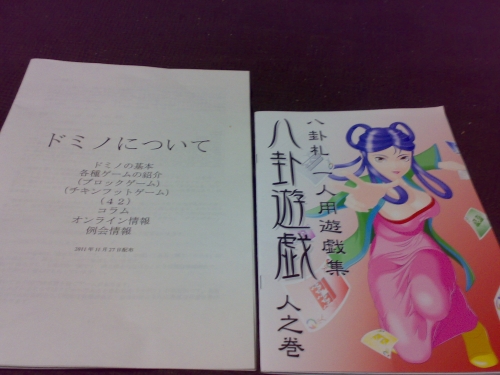 ドミノについて
ドミノの基本
各種ゲームの紹介
(ブロックゲーム)
(チキンフットゲーム)
(42)
コラム
オンライン情報
例会情報
八卦札 一人用遊戯集
八卦遊戯
人之巻